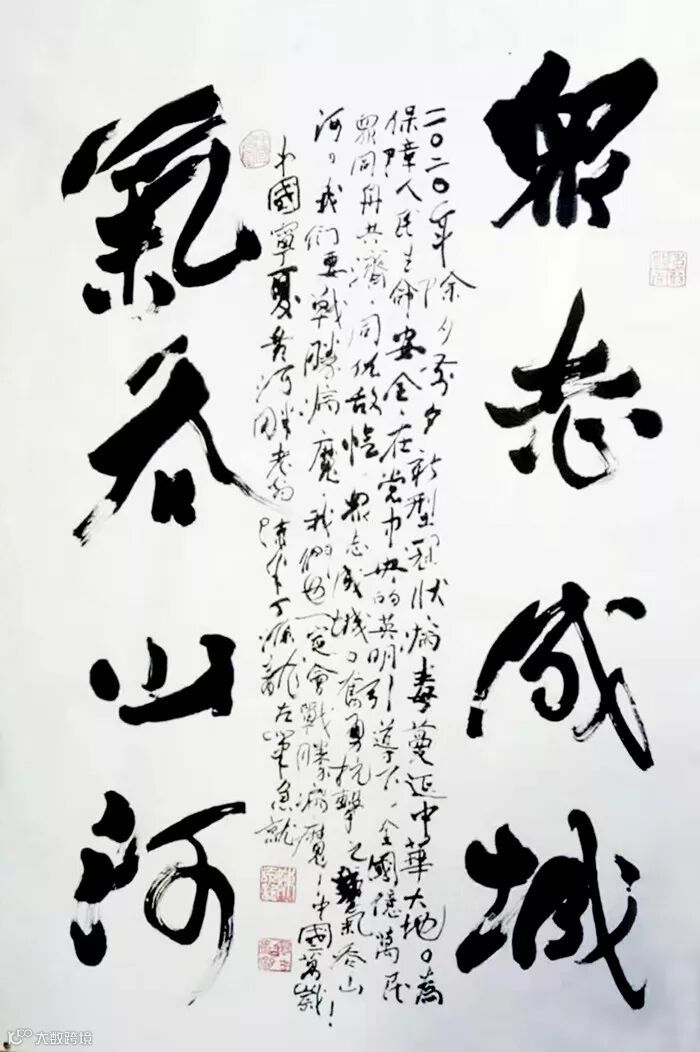 眾志成城
二〇二〇年除夕前夕新型冠狀病毒蔓延中華大地。為
保障人民生命安全,在党中央的英明引導下,全國億萬民
眾同舟共濟,同仇敌愾,眾志成城。奮勇抗擊之氣吞山
河。我们要戰勝病魔,我們也一定會戰勝病魔!中國萬歲!
中國寧夏黃河畔老翁 左筆急就
氣吞山河
大数跨境